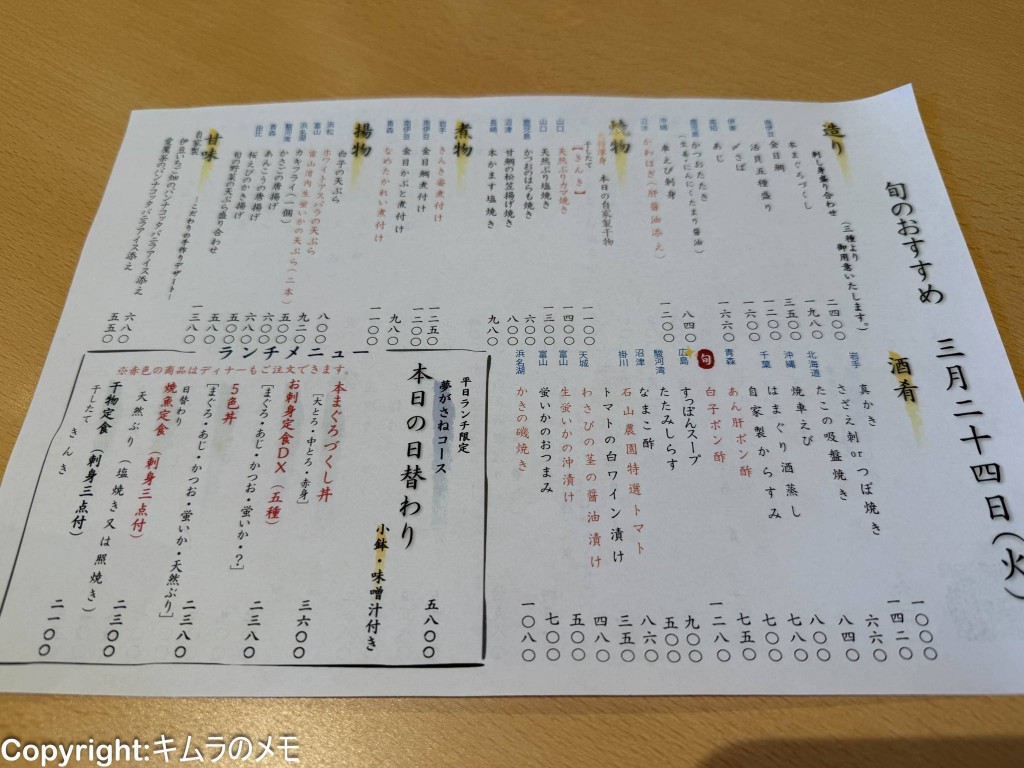 旬のおすすめ 三月二十四日(火)
造り
刺し身盛り合わせ
(三種より
御用意いたします。)
二四〇〇
本まぐろづくし
一九八〇
南伊豆
金目鯛
三五〇〇
活貝五種盛り
一二〇〇
伊東
〆さば
あじ
高知
かつおたたき
(生姜・にんにく・たまり醤油)
沖縄
車えび刺身
沼津
かわはぎ(肝醤油添え)
焼物
本日の自家製干物
干したて
【きんき】
山口
天然ぶりカマ焼き
山口
天然ぶり塩焼き
鹿児島
かつおのはらも焼き
沼津
甘鯛の松笠揚げ焼き
長崎
本かます塩焼き
煮物
岩手
きんき姿煮付け
南伊豆
金目鯛煮付け
南伊豆
金目かぶと煮付け
青森
なめたかれい煮付け
揚物
白子の天ぷら
浜松
ホワイトアスパラの天ぷら
富山
富山湾内生蛍いかの天ぷら(二本)
浜名湖
カキフライ(一個)
駿河湾
かさごの唐揚げ
青森
あんこうの唐揚げ
由比
桜えびのかき揚げ
旬の野菜の天ぷら盛り合わせ
甘味
自家製
…こだわりの手作りデザート…
伊豆いちご畑のパンナコッタバニラアイス添え
金萱茶のパンナコッタバニラアイス添え
六八〇
五五〇
酒肴
岩手
真かき
さざえ刺orつぼ焼き
北海道
たこの吸盤焼き
沖縄
焼車えび
千葉
はまぐり酒蒸し
自家製からすみ
青森
あん肝ポン酢
白子ポン酢
旬
広島
すっぽんスープ
駿河湾
たたみしらす
沼津
なまこ酢
掛川
石山農園特選トマト
トマトの白ワイン漬け
天城
わさびの茎の醤油漬け
富山
生蛍いかの沖漬け
富山
蛍いかのおつまみ
浜名湖
かきの磯焼き
一〇〇〇
一四二〇
六六〇
八四〇
八〇〇
七八〇
七五〇
一二八〇
九〇〇
五〇〇
八六〇
三五〇
四八〇
五〇〇
七〇〇
一〇八〇
ランチメニュー
※赤色の商品はディナーもご注文できます。
平日ランチ限定
夢がさねコース
五八〇〇
本日の日替わり
小鉢・味噌汁付き
本まぐろづくし丼
[大とろ・中とろ・赤身]
三六〇〇
お刺身定食DX(五種)
[まぐろ・あじ・かつお・蛍いか・?]
二三八〇
5色丼
[まぐろ・あじ・かつお・蛍いか・天然ぶり]
二三八〇
日替わり
焼魚定食 (刺身三点付)
天然ぶり (塩焼き又は照焼き)
二三〇〇
干物定食 (刺身三点付)
干したてきんき
二一〇〇
Copyright:キムラのメモ